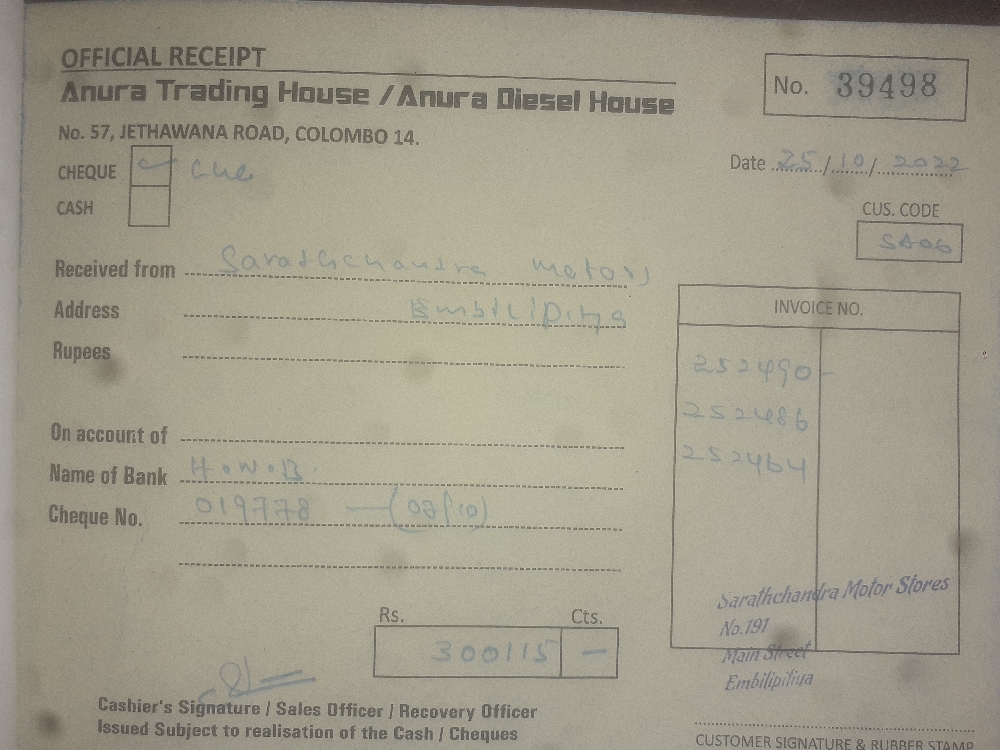 OFFICIAL RECEIPT
Anura Trading House / Anura Diesel House
No. 39498
No. 57, JETHAWANA ROAD, COLOMBO 14.
Date 25/10/2022
CHEQUE
CASH
CUS. CODE
SA06
Received from Sarathchandra Motors
Address Embilipitiya
Rupees
INVOICE NO.
252490 -
252486
252464
On account of
Name of Bank H.N.B.
Cheque No. 019778
Rs. Cts.
300115 -
Sarathchandra Motor Stores
No.191
Main Street
Embilipitiya
Cashier's Signature / Sales Officer / Recovery Officer
Issued Subject to realisation of the Cash / Cheques
CUSTOMER SIGNATURE & RUBBER STAMP